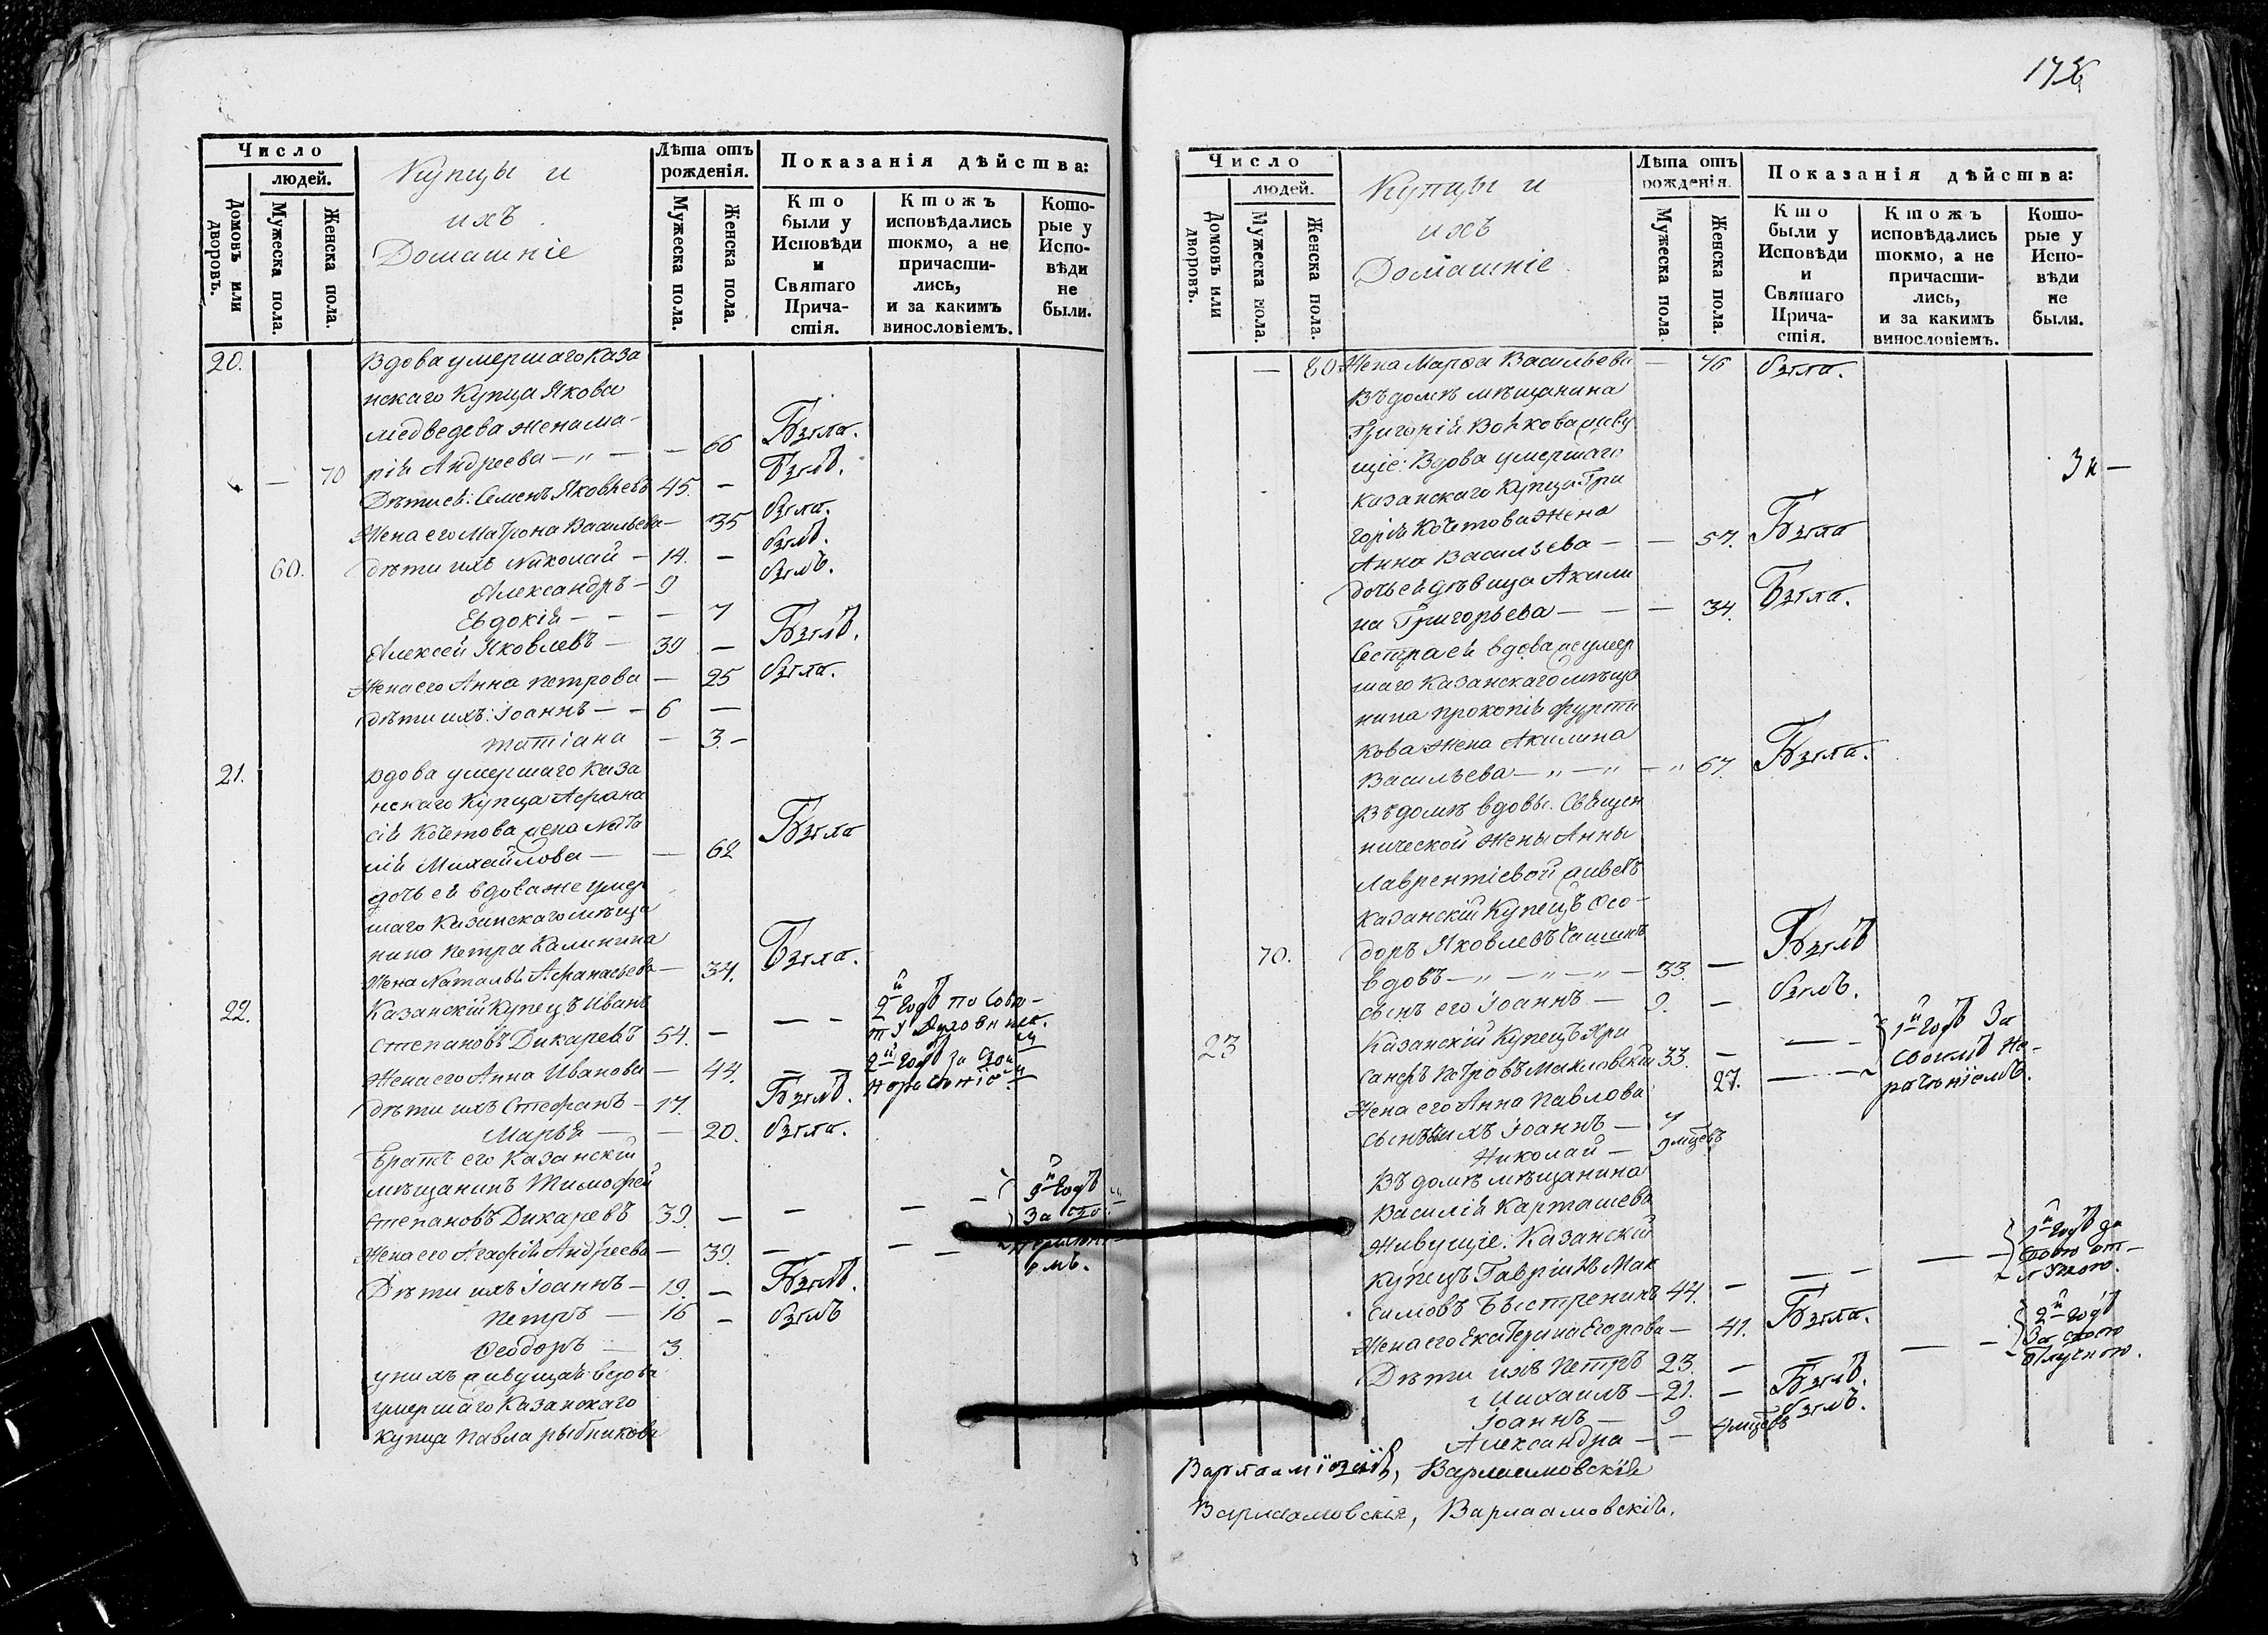 Число
людей.
Домовъ или дворовъ.
Мужеска пола.
Женска пола.
Купцы и
ихъ
Домашніе
Лѣта отъ рожденія.
Мужеска пола.
Женска пола.
Показанія дѣйства:
Кто были у Исповѣди и Святаго Причастія.
Ктожъ исповѣдались токмо, а не причастились, и за какимъ винословіемъ.
Которые у Исповѣди не были.
20. Вдова умершаго Каза
нскаго Купца Якова
Медведева жена Ма-
— 70 рія Андреева — „ — — 66 Была.
Дѣти ея: Семенъ Яковлевъ 45. — Былъ.
Жена его Матрона Васильева — 35 была.
60. дѣти ихъ Николай — 14. — былъ.
Александръ — 9 былъ.
Евдокія — — — 7
Алексей Яковлевъ — 39 — Былъ.
Жена его Анна Петрова — 25 была.
дѣти ихъ: Іоаннъ — — 6 —
Татіана — 3. —
21. Вдова умершаго Каза
нскаго Купца Афана
сія Кочетова жена Ната
лія Михайлова — — 62 Была
дочь ея вдова же умер
шаго Казанскаго мѣща
нина Петра Калинина
Жена Наталья Афанасьева — 34. Была.
22. Казанскій Купецъ Иванъ
Степановъ Дикаревъ 54. — — — 2й годъ по Совѣ-
ту Духовника.
Жена его Анна Иванова — 44. — — 2й годъ за свои
нераченіе
дѣти ихъ Стефанъ — 17. Былъ.
Марья — — 20. была.
братъ его Казанскій
мѣщанинъ Тимофей
Степановъ Дикаревъ 39. — — — 9й годъ
За сво
Жена его Агафія Андреева — 39. — — — —
емъ.
Дѣти ихъ Іоаннъ — 19. — Былъ.
Петръ — 16 — былъ
Феодоръ — 3.
у нихъ живущая вдова
умершаго Казанскаго
купца Павла рыбникова
Число
людей.
Домовъ или дворовъ.
Мужеска пола.
Женска пола.
Купцы и
ихъ
Домашніе
Лѣта отъ рожденія.
Мужеска пола
Женска пола.
Показанія дѣйства:
Кто были у Исповѣди и Святаго Причастія.
Ктожъ исповѣдались токмо, а не причастились, и за какимъ винословіемъ.
Которые у Исповѣди не были.
— 80 Жена Марфа Васильева — 46 была.
Въ домѣ мѣщанина
Григорія Войкова живу
щіе: Вдова умершаго
Казанскаго Купца Гри
горія Кочетова жена
Анна Васильева — — 57. Была
дочь ея дѣвица Акили
на Григорьева — — — 34. Была.
Сестра ея вдова же умер
шаго Казанскаго мѣща
нина Прокопія
кова жена Акилина
Васильева — „ — „ — „ 67. Была.
Въ домѣ вдовы Священ
нической жены Анны
Лаврентіевой живетъ
Казанскій Купецъ Фео-
70. доръ Яковлевъ
вдовъ — „ — „ — „ — 33. — Былъ
сынъ его Іоаннъ — 9. — былъ.
23 Казанскій Купецъ Хри
санфъ Петровъ 33. — — — 1й годъ За
своимъ не-
Жена его Анна Павлова 27. — — раченіемъ.
Іоаннъ — 4
Николай — 9 мцевъ
Въ домѣ мѣщанина
Василія Карташева
Живущіе: Казанскій
купецъ Гавріилъ Мак
симовъ Быстренинъ 44. — — — — — 1й годъ за
своею от-
лучкою.
Жена его Екатерина Егорова — 41. Была.
Дѣти ихъ Петръ 23. — — — — 2й годъ
За своею
отлучкою.
Михаилъ — 21. — Былъ.
Іоаннъ — 9 былъ.
Александра — — мцевъ
Варлаамовскія
Варлаамовскія, Варлаамовскій.